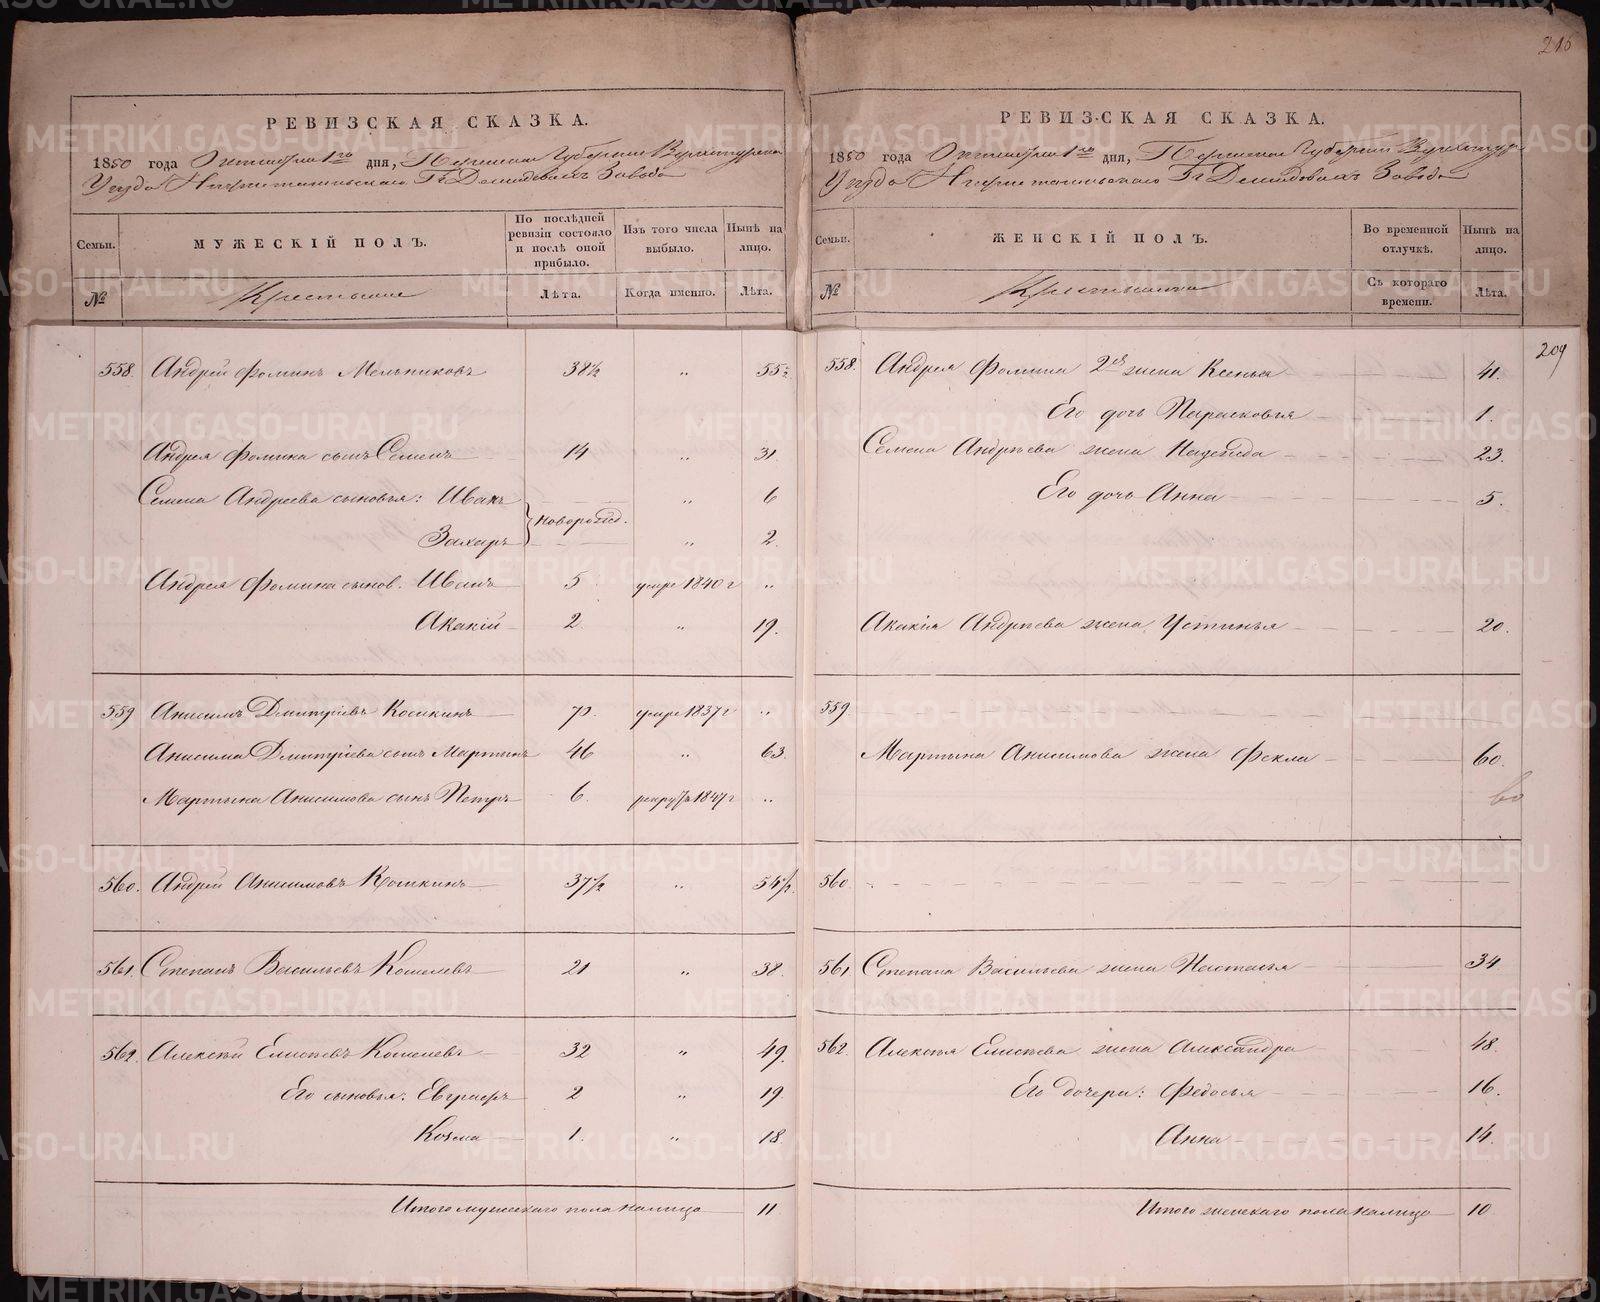 216
РЕВИЗСКАЯ СКАЗКА.
1850 года Октября 1го дня, Пермской Губернии Верхотурскаго
Уезда Нижнетагильскаго Гг Демидовыхъ Завода
Семьи.
МУЖЕСКІЙ ПОЛЪ.
По послѣдней ревизіи состояло и послѣ оной прибыло.
Изъ того числа выбыло.
Нынѣ на лицо.
№
Крестьяне
Лѣта.
Когда именно.
Лѣта.
558. Андрей Фоминъ Мельниковъ 38½ " 55½
Андрея Фомина сынъ Семенъ 14 " 31.
Семена Андреева сыновья: Иванъ " 6
новорожд.
Захаръ " 2.
Андрея Фомина сынов. Иванъ 5 умре 1840 г "
Акакій 2 " 19.
559 Анисимъ Дмитріевъ Косикинъ 70. умре 1837 г "
Анисима Дмитріева сынъ Мартынъ 46 " 63.
Мартына Анисимова сынъ Петръ 6. рекрут. 1847 г "
560. Андрей Анисимовъ Кошкинъ 37½ " 54½.
561. Степанъ Васильевъ Кошелевъ 21 " 38.
562. Алексѣй Елисѣевъ Кошелевъ 32 " 49.
Его сыновья: Евграфъ 2 " 19
Козма 1. " 18.
Итого мужескаго пола налицо 11
РЕВИЗСКАЯ СКАЗКА.
1850 года Октября 1го дня, Пермской Губерніи Верхотур.
Уезда Нижнетагильскаго Гг Демидовыхъ Завода
Семьи.
ЖЕНСКІЙ ПОЛЪ.
Во временной отлучкѣ.
Нынѣ на лицо.
№
Крестьянки
Съ котораго времени.
Лѣта.
209
558. Андрея Фомина 2ая жена Ксенья 41.
Его дочь Парасковья 1.
Семена Андрѣева жена Надежда 23.
Его дочь Анна 5.
Акакія Андрѣева жена Устинья 20.
559.
Мартына Анисимова жена Фекла 60.
60
560.
561. Степана Васильева жена Настасья 34
562. Алексѣя Елисѣева жена Александра 48.
Его дочери: Федосья 16.
Анна 14.
Итого женскаго пола налицо 10
METRIKI.GASO-URAL.RU